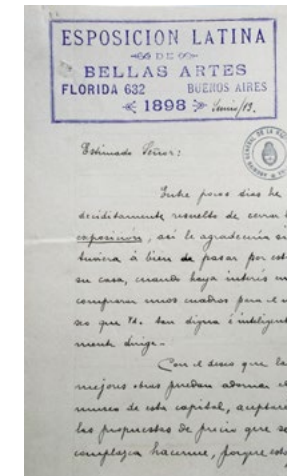 ESPOSICION LATINA
DE
BELLAS ARTES
FLORIDA 632 BUENOS AIRES
1898 Junio/13.
Estimado Señor:
Entre pocos dias he
decididamente resuelto de cerrar
esposición, así le agradeceria si
tuviera á bien de pasar por est
su casa, cuando haya interés en
comprar unos cuadros para el m
seo que Vd. tan digna é inteligent
mente dirige.-
Con el deseo que la
mejores obras puedan adornar el
museo de esta capital, aceptaré
las propuestas de precio que se
complazca hacerme, porque est